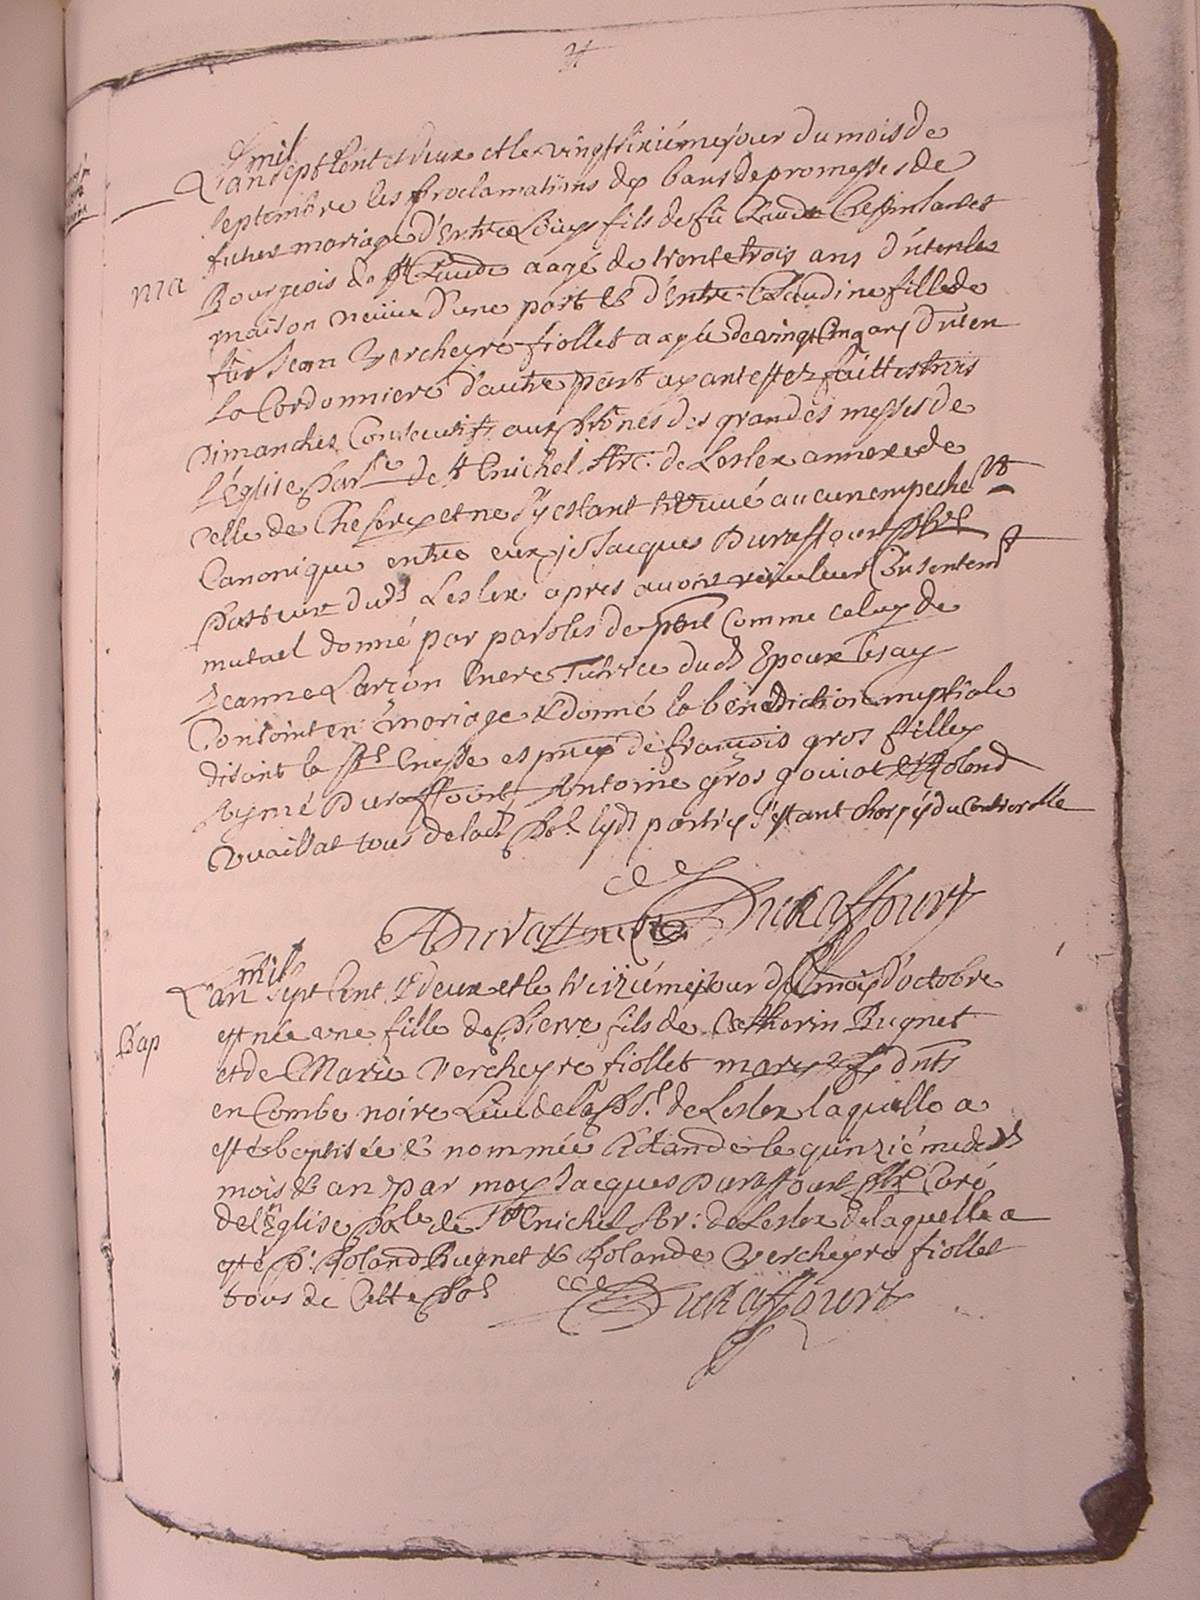 mil
L'an sept Cent et deux et le vingt sixiéme jour du mois de
septembre les proclamations des bans de promesses de
futur mariage d'Entre Louys fils de fû Claude
Bourgeois de St Claude aagé de trente trois ans d'uten la
maison neüue d'une part & d'Entre Claudine fille de
fûs Jean Vercheyre fiollet aagée de vingt Cinq ans d'uten
la Cordonniere d'autre part ayant estez faittes trois
Dimanches Consecutifs aux prônes des grandes messes de
l'église par.lle de St Michel Arc: de Lesler annexe de
celle de Chesery et ne s'y estant trouué aucun empeche.nt
Canonique entre eux je Jacques Duraffourt
pasteur dud Lesler apres auoir receu leur Consentem.t
mutuel donné par paroles de p.nt comme celuy de
Jeanne Larçon mere Tutrice dud Epoux les ay
Conjoint en mariage & donné la bénédiction nuptiale
disant la Ste Messe es p.nces de françois gros fillex
Aymé Duraffourt, Antoine gros goujat & Roland
Vuaillat tous de lad par. lesd parties s'estant du Controolle
ADuraffourt Duraffourt
mil
L'an sept Cent & deux et le treiziéme jour du mois d'octobre
est née une fille de Pierre fils de Catherin Bugnet
et de Marie Vercheyre fiollet maries
en Combe noire Lieu de la p.sse de Lesler laquelle a
esté baptisée & nommée Rolande le quinziéme du d
mois & an par moy Jacques Duraffourt p.bre Curé
de l'Eglise p.le de St Michel Ar: de Lesler de laquelle a
esté P. Roland Bugnet & Rolande Vercheyre fiollet
tous de Cette par.
Duraffourt
ma
Bap